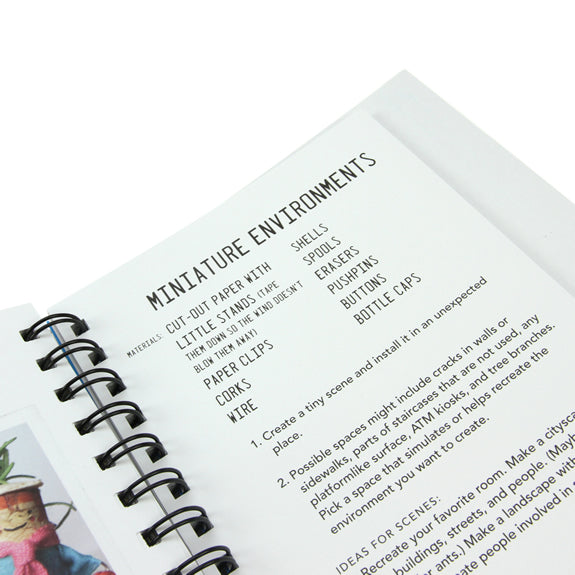 MINIATURE ENVIRONMENTS
MATERIALS: CUT-OUT PAPER WITH
LITTLE STANDS (TAPE
THEM DOWN SO THE WIND DOESN'T
BLOW THEM AWAY)
PAPER CLIPS
CORKS
WIRE
SHELLS
SPOOLS
ERASERS
PUSHPINS
BUTTONS
BOTTLE CAPS
1. Create a tiny scene and install it in an unexpected
place.
2. Possible spaces might include cracks in walls or
sidewalks, parts of staircases that are not used, any
platformlike surface, ATM kiosks, and tree branches.
Pick a space that simulates or helps recreate the
environment you want to create.
IDEAS FOR SCENES:
Recreate your favorite room. Make a
buildings, streets, and people.
for ants.) Make a landscape with
people involved in